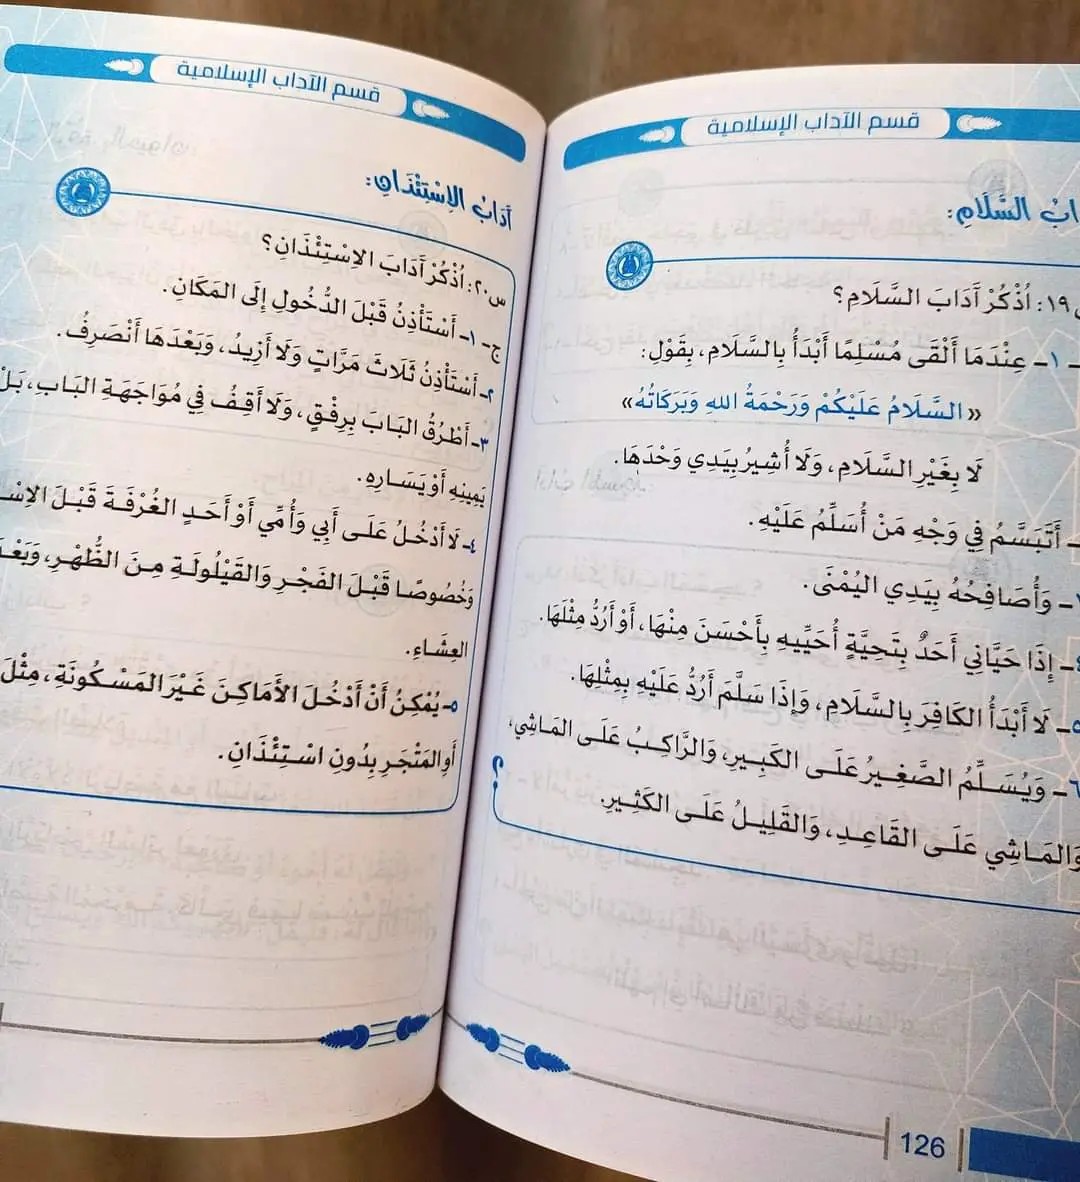 قسم الآداب الإسلامية
السَّلَامِ:
١٩: اُذْكُرْ آدَابَ السَّلَامِ؟
١- عِنْدَمَا أَلْقَى مُسْلِمًا أَبْدَأُ بِالسَّلَامِ، بِقَوْلِ:
«السَّلَامُ عَلَيْكُمْ وَرَحْمَةُ اللهِ وَبَرَكَاتُهُ»
لَا بِغَيْرِ السَّلَامِ، وَلَا أُشِيرُ بِيَدِي وَحْدَهَا.
- أَتَبَسَّمُ فِي وَجْهِ مَنْ أُسَلِّمُ عَلَيْهِ.
- وَأُصَافِحُهُ بِيَدِي اليُمْنَى.
- إِذَا حَيَّانِي أَحَدٌ بِتَحِيَّةٍ أُحَيِّيهِ بِأَحْسَنَ مِنْهَا، أَوْ أَرُدُّ مِثْلَهَا.
- لَا أَبْدَأُ الكَافِرَ بِالسَّلَامِ، وَإِذَا سَلَّمَ أَرُدُّ عَلَيْهِ بِمِثْلِهَا.
٦- وَيُسَلِّمُ الصَّغِيرُ عَلَى الكَبِيرِ، وَالرَّاكِبُ عَلَى المَاشِي،
وَالمَاشِي عَلَى القَاعِدِ، وَالقَلِيلُ عَلَى الكَثِيرِ.
126
قسم الآداب الإسلامية
آدَابُ الِاسْتِئْذَانِ:
س٢٠: اُذْكُرْ آدَابَ الِاسْتِئْذَانِ؟
ج- ١- أَسْتَأْذِنُ قَبْلَ الدُّخُولِ إِلَى المَكَانِ.
٢- أَسْتَأْذِنُ ثَلَاثَ مَرَّاتٍ وَلَا أَزِيدُ، وَبَعْدَهَا أَنْصَرِفُ.
٣- أَطْرُقُ البَابَ بِرِفْقٍ، وَلَا أَقِفُ فِي مُوَاجَهَةِ البَابِ، بَلْ
يَمِينِهِ أَوْ يَسَارِهِ.
٤- لَا أَدْخُلُ عَلَى أَبِي وَأُمِّي أَوْ أَحَدٍ الغُرْفَةَ قَبْلَ
وَخُصُوصًا قَبْلَ الفَجْرِ وَالقَيْلُولَةِ مِنَ الظُّهْرِ،
العِشَاءِ.
٥- يُمْكِنُ أَنْ أَدْخُلَ الأَمَاكِنَ غَيْرَ المَسْكُونَةِ، مِثْلَ
أَوِ المَتْجَرِ بِدُونِ اسْتِئْذَانِ.